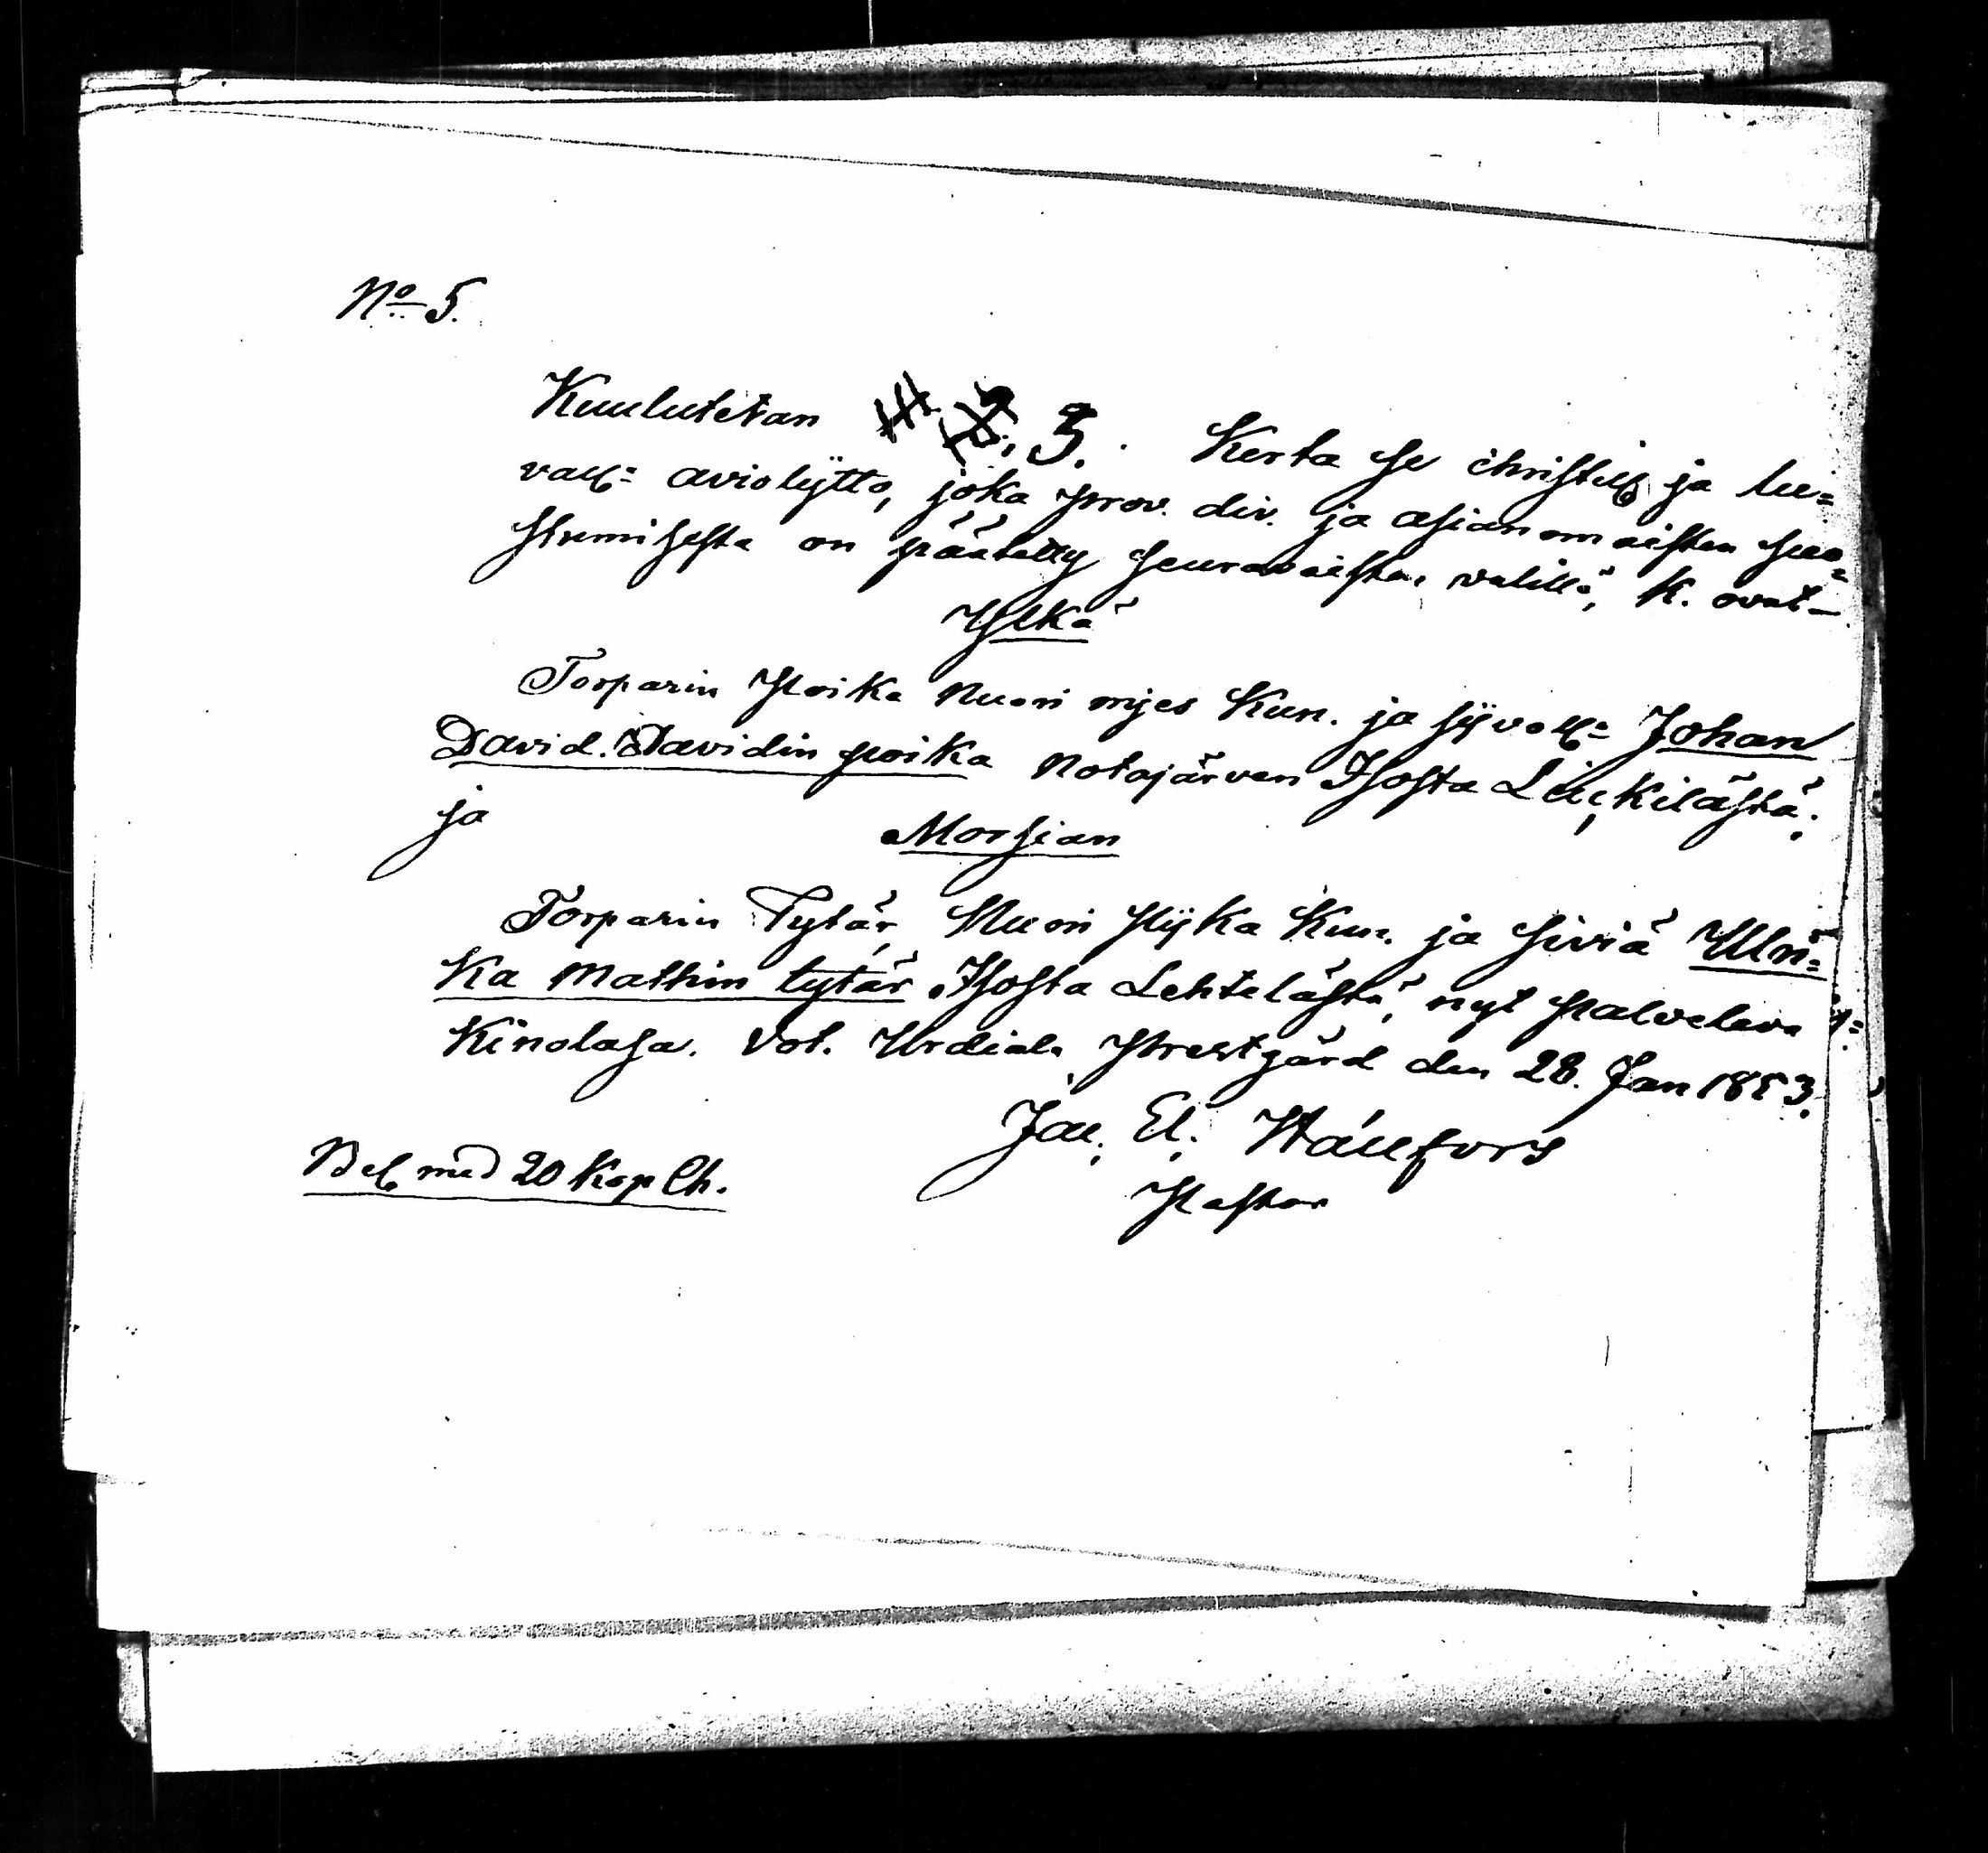 No 5.
Kuulutetan 3. Kerta se christell. ja lu=
vall= avioliytto, joka prov. div. ja asianomaisten suo=
stumisesta on päätetty seuravaisten välillä, k. ovat—
Yljkä
Torparin Poika Nuori mjes Kun. ja syvoll= Johan
David. Davidin poika Notajärven Isosta Liukilästä;
ja
Morsian
Torparin Tytär, Nuori Pijka Kun. ja Siviä Ulri=
ka Mathin tytär Isosta Lehtelästä, nyt palveleva
Kinolasa. Vot. Urdiala Prestgård den 28. Jan 1853.
Jac. El. Wallfors
Pastor
Bel. med 20 Kop Ch.